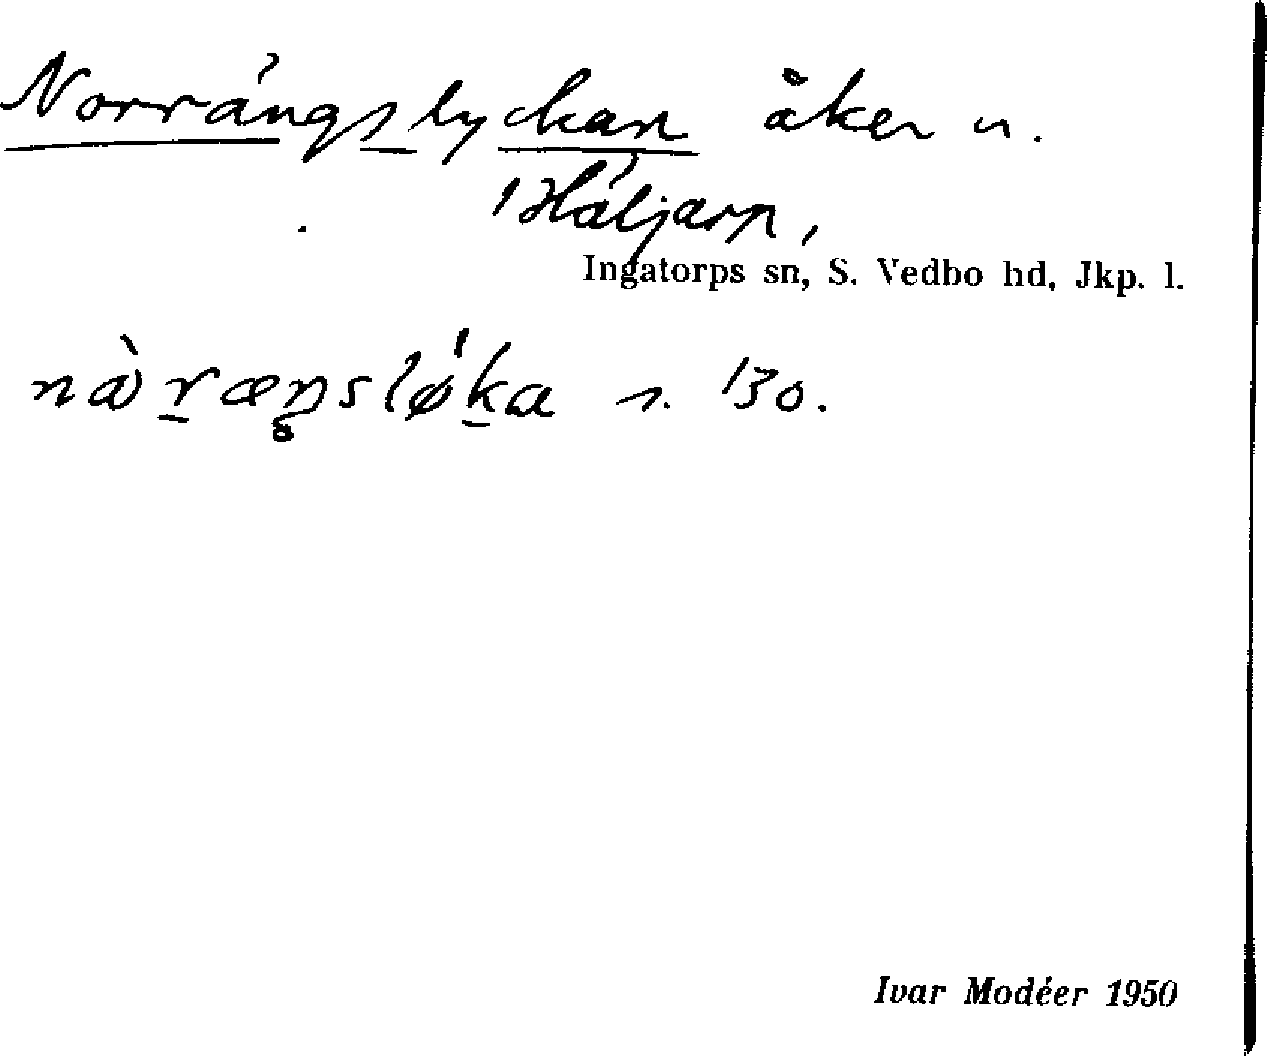 Norrängslyckan åker u.
Häljarp,
Ingatorps sn, S. Vedbo hd, Jkp. l.
nàræŋsløka s. 130.
Ivar Modéer 1950